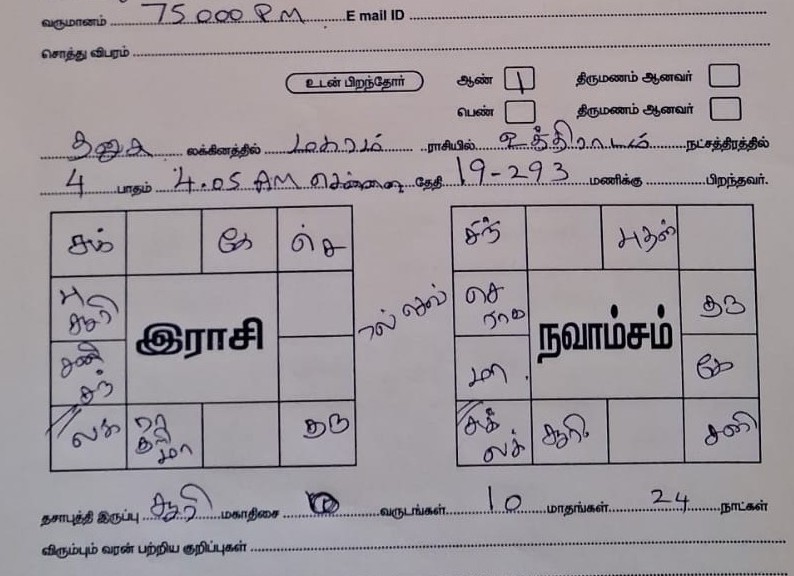 வருமானம் 75000 P.M. E mail ID
சொத்து விபரம்
உடன் பிறந்தோர் ஆண் 1 திருமணம் ஆனவர்
பெண் திருமணம் ஆனவர்
தனுசு லக்கினத்தில் மகரம் ராசியில் உத்திராடம் நட்சத்திரத்தில்
4 பாதம் 4.05 AM சென்னை தேதி 19-293 மணிக்கு பிறந்தவர்.
கே செ சந் புதன்
பு சூரி செ ராகு குரு
இராசி நவாம்சம்
சனி சந் மா கே
லக் ரா குளி மா குரு சுக் லக் சூரி சனி
தசாபுத்தி இருப்பு சூரி மகாதிசை 0 வருடங்கள் 10 மாதங்கள் 24 நாட்கள்
விரும்பும் வரன் பற்றிய குறிப்புகள்